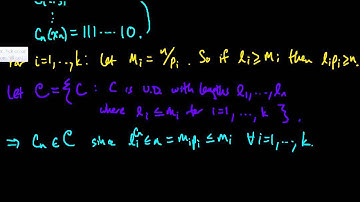 C_n(x_n) = 111 ⋯ 10.
for i=1,..,k: let m_i = n/p_i. So if l_i ≥ m_i then l_i p_i ≥ n.
Let C = { C : C is U.D. with lengths l_1,...,l_n
where l_i ≤ m_i for i=1,..., k }.
⇒ C_n ∈ C since l_i^{C_n} ≤ n = m_i p_i ≤ m_i ∀ i=1,...,k.